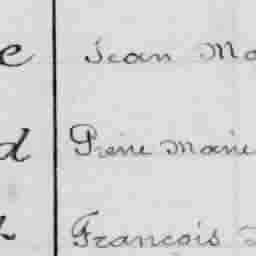 e Jean Ma
d Pierre Marie
Francois